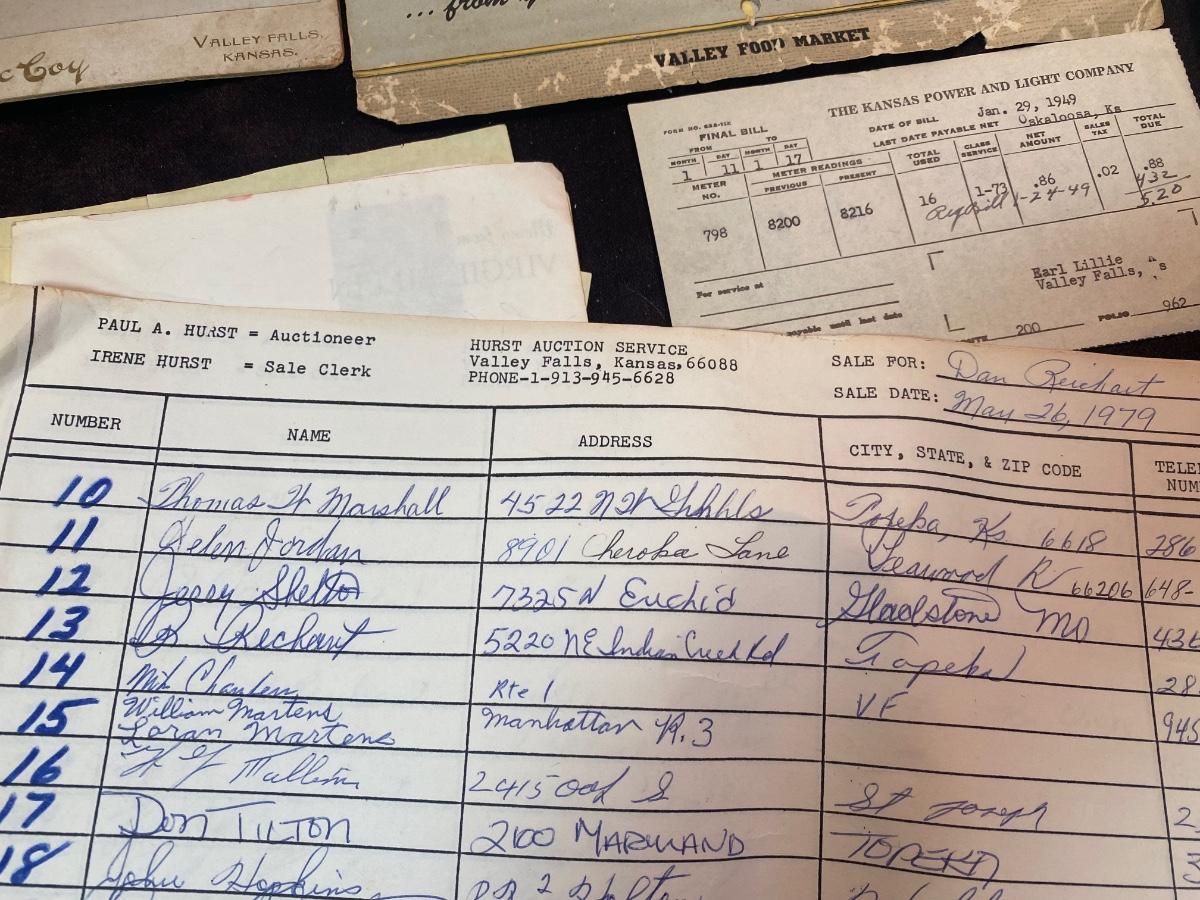 VALLEY FALLS,
KANSAS.
c Coy
... from
VALLEY FOOD MARKET
THE KANSAS POWER AND LIGHT COMPANY
FORM NO.
FINAL BILL
DATE OF BILL Jan. 29, 1949
LAST DATE PAYABLE NET Oskaloosa, Ks
FROM TO
MONTH DAY MONTH DAY
1 11 1 17
METER READINGS
METER NO. PREVIOUS PRESENT TOTAL USED CLASS SERVICE NET AMOUNT SALES TAX TOTAL DUE
798 8200 8216 16 1-73 .86 .02 .88
1-24-49 432
5.20
For service at
Earl Lillie
Valley Falls, s
payable until last date
200 FOLIO 962
VIRGIL
PAUL A. HURST = Auctioneer
IRENE HURST = Sale Clerk
HURST AUCTION SERVICE
Valley Falls, Kansas, 66088
PHONE-1-913-945-6628
SALE FOR: Dan Reichart
SALE DATE: May 26, 1979
NUMBER NAME ADDRESS CITY, STATE, & ZIP CODE TELE
NUM
10 Thomas W Marshall 4522 NW Topeka, Ks 6618 286
11 Helen Jordan 8901 Cherokee Lane Leawood K 66206 648-
12 Jerry Shelton 7325 N Euclid Gladstone Mo 436
13 Rechart 5220 NE Indian Creek Rd Topeka 28
14 Rte 1 VF 945
15 William Martens Manhattan R. 3
Loran Martens
16 St Joseph 2
17 Don Tilton 2100 MARYLAND TOPEKA
18 John Hopkins 2